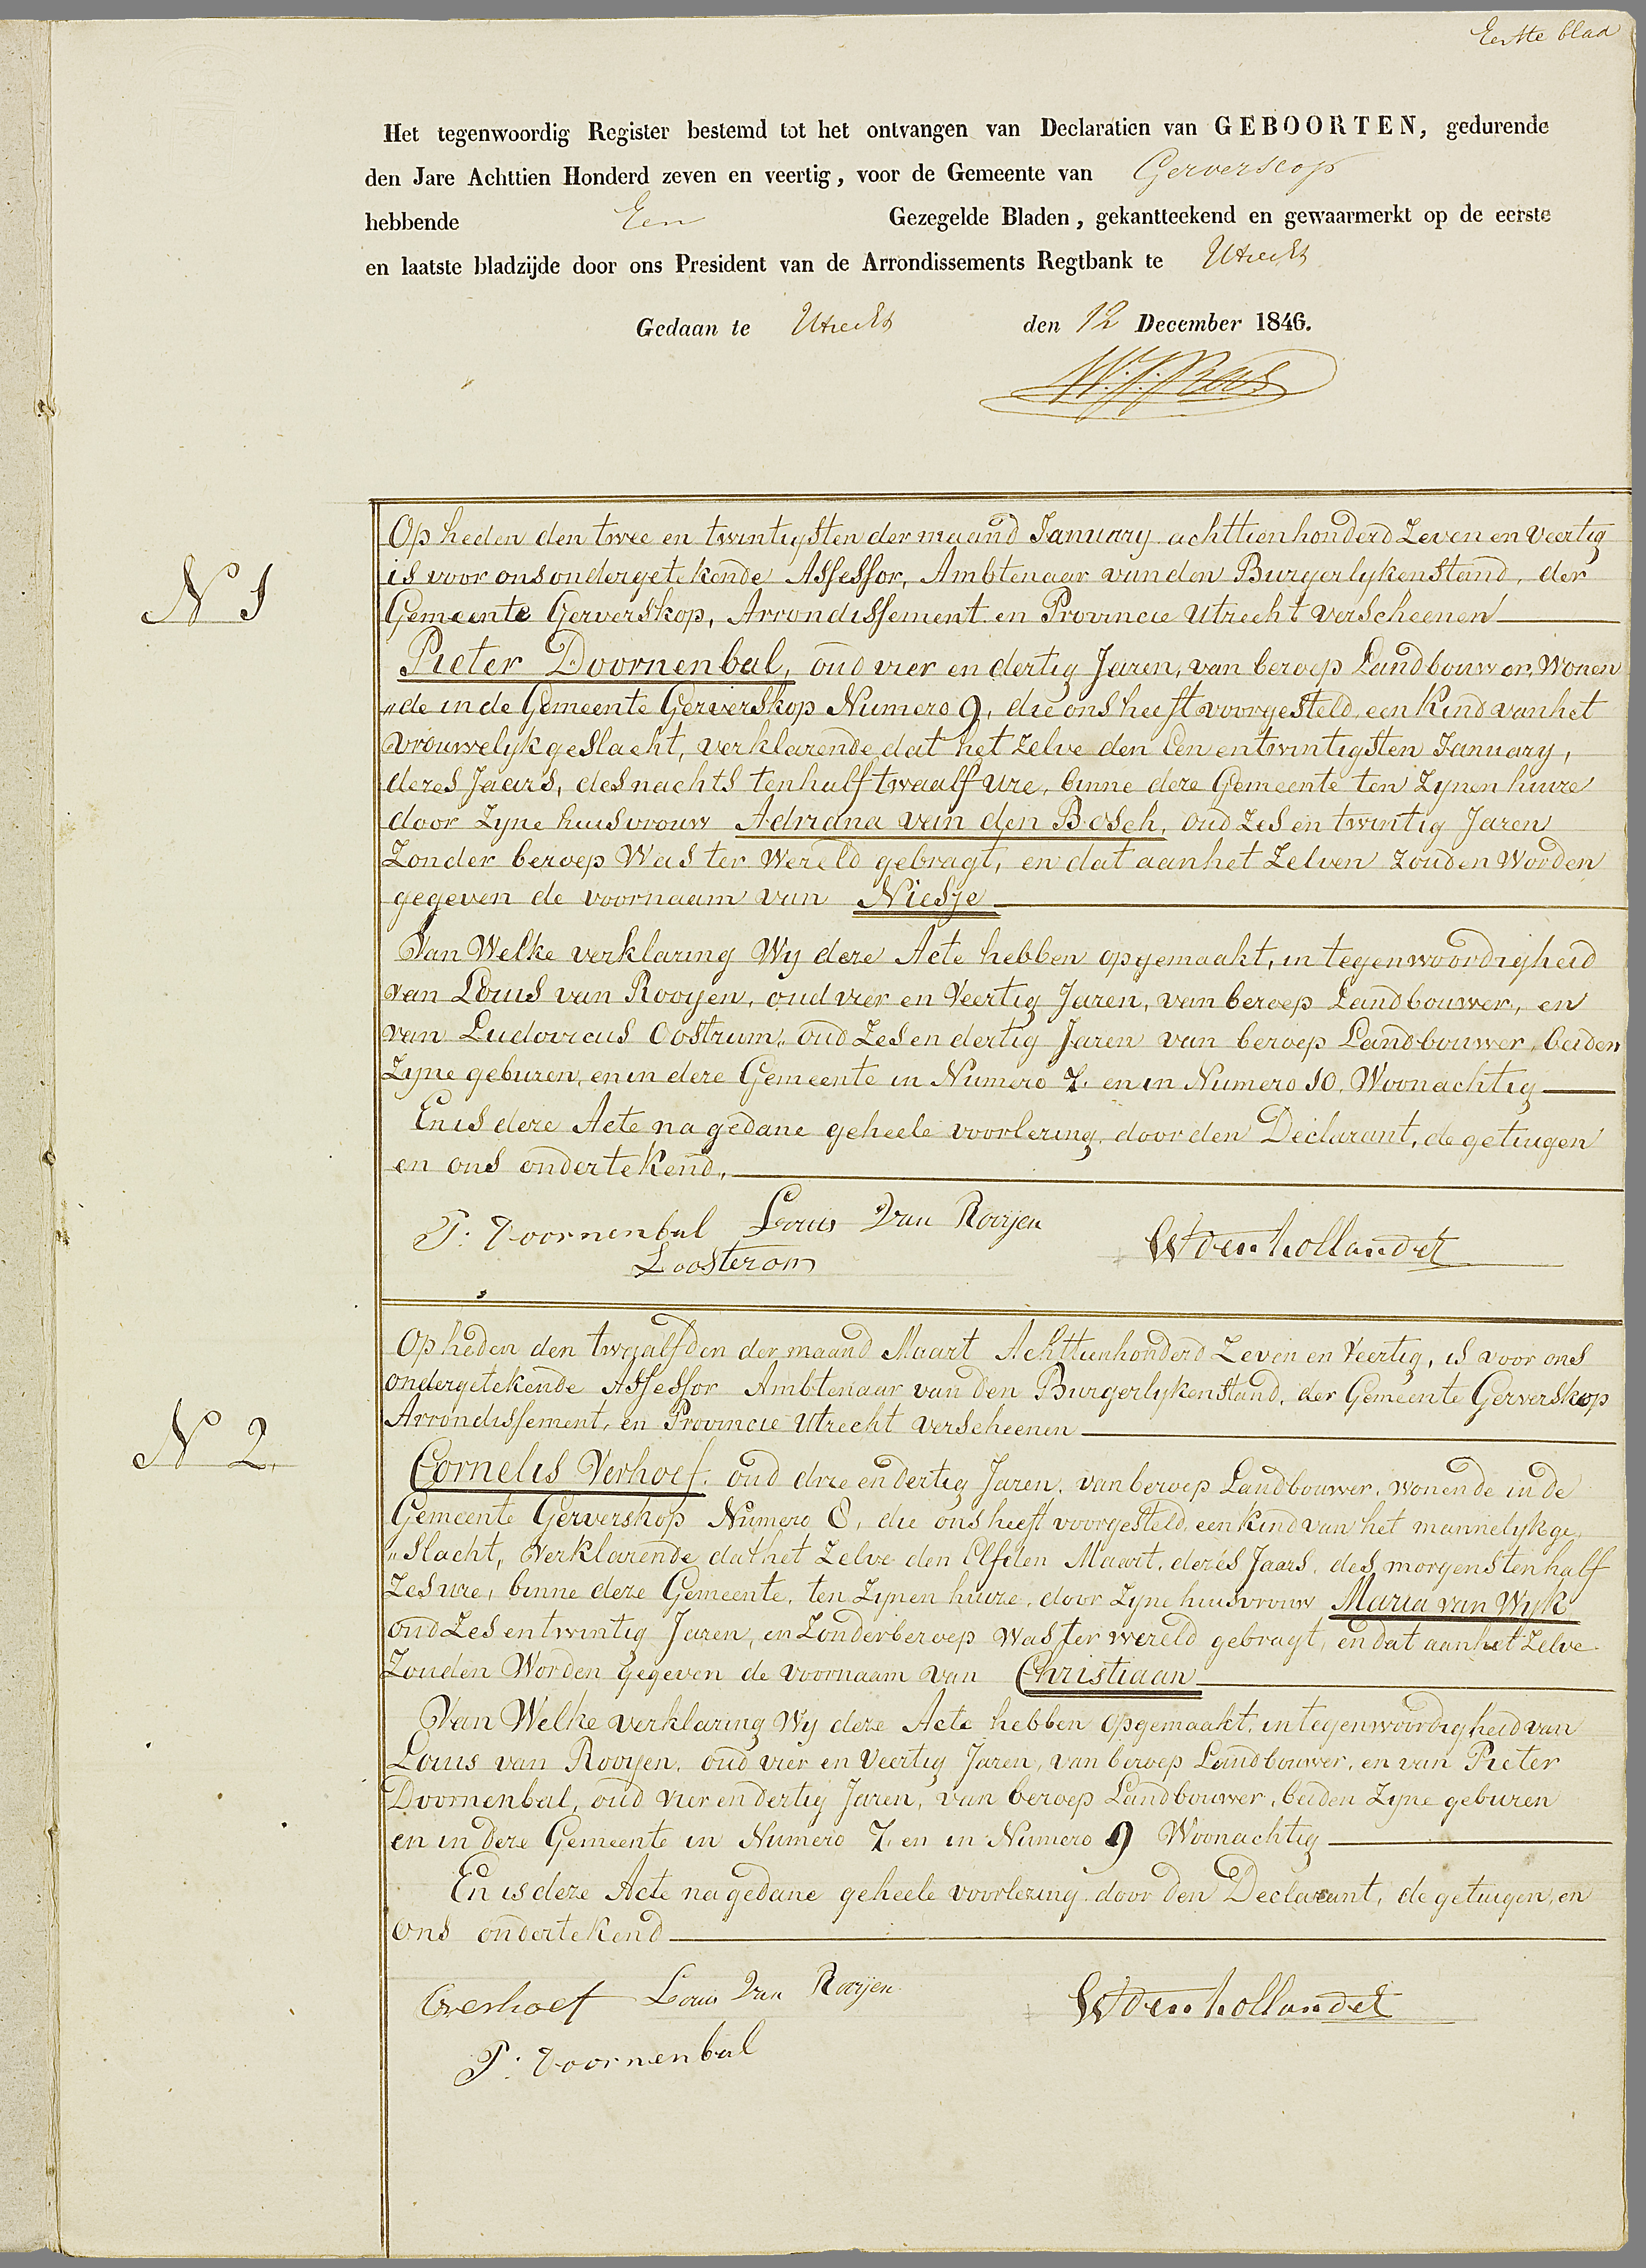 Eerste blad
Het tegenwoordig Register bestemd tot het ontvangen van Declaratien van GEBOORTEN, gedurende
den Jare Achttien Honderd zeven en veertig, voor de Gemeente van Gerverscop
hebbende Een Gezegelde Bladen, gekantteekend en gewaarmerkt op de eerste
en laatste bladzijde door ons President van de Arrondissements Regtbank te Utrecht
Gedaan te Utrecht den 12 December 1846.
N 1
Op heden den twee en twintigsten der maand January achttienhonderd Zeven en Veertig
is voor ons ondergetekende Assessor, Ambtenaar van den Burgerlyken Stand, der
Gemeente Gerverskop, Arrondissement en Provincie Utrecht verscheenen
Pieter Doornenbal, oud vier en dertig Jaren, van beroep Landbouwer, Wonen
"de in de Gemeente Gerverskop Numero 9, die ons heeft voorgesteld, een Kind van het
Vrouwelyk geslacht, verklarende dat het zelve den een en twintigsten January,
dezes Jaars, des nachts ten half twaalf ure, binne deze Gemeente ten Zynen huize
door Zyne huisvrouw Adriana van den Bosch, oud Zes en twintig Jaren
Zonder beroep Was ter Wereld gebragt, en dat aan het Zelven zouden Worden
gegeven de voornaam van Niesje
Van Welke verklaring Wy deze Acte hebben opgemaakt, in tegenwoordigheid
van Louis van Rooyen, oud vier en Veertig Jaren, van beroep Landbouwer, en
van Ludovicus Oostrum, oud Zes en dertig Jaren van beroep Landbouwer, beiden
Zyne geburen, en in deze Gemeente in Numero 7. en in Numero 10. Woonachtig
En is deze Acte na gedane geheele voorlezing, door den Declarant, de getuigen
en ons ondertekend,
P: Doornenbal Louis Van Rooijen
W den hollander
L oosterom
N 2.
Op heden den twaalfden der maand Maart Achttienhonderd Zeven en Veertig, is voor ons
ondergetekende Assessor Ambtenaar van den Burgerlyken Stand, der Gemeente Gerverskop
Arrondissement, en Provincie Utrecht verscheenen
Cornelis Verhoef, oud drie en dertig Jaren, van beroep Landbouwer, wonende in de
Gemeente Gerverskop Numero 8, die ons heeft voorgesteld, een kind van het mannelyk ge,
"Slacht, Verklarende dat het Zelve den Elfden Maart, dezes Jaars, des morgens ten half
Zes ure, binne deze Gemeente, ten Zynen huize, door Zyne huisvrouw Maria van Wyk
oud Zes en twintig Jaren, en Zonder beroep was ter wereld gebragt, en dat aan het Zelve
Zouden Worden gegeven de voornaam van Christiaan
Van Welke verklaring Wy deze Acte hebben opgemaakt, in tegenwoordigheid van
Louis van Rooyen, oud vier en Veertig Jaren, van beroep Landbouwer, en van Pieter
Doornenbal, oud vier en dertig Jaren, van beroep Landbouwer, beiden Zyne geburen
en in deze Gemeente in Numero 7. en in Numero 9 Woonachtig
En is deze Acte na gedane geheele voorlezing door den Declarant, de getuigen, en
ons ondertekend
C verhoef Louis Van Rooijen
W den hollander
P: Doornenbal